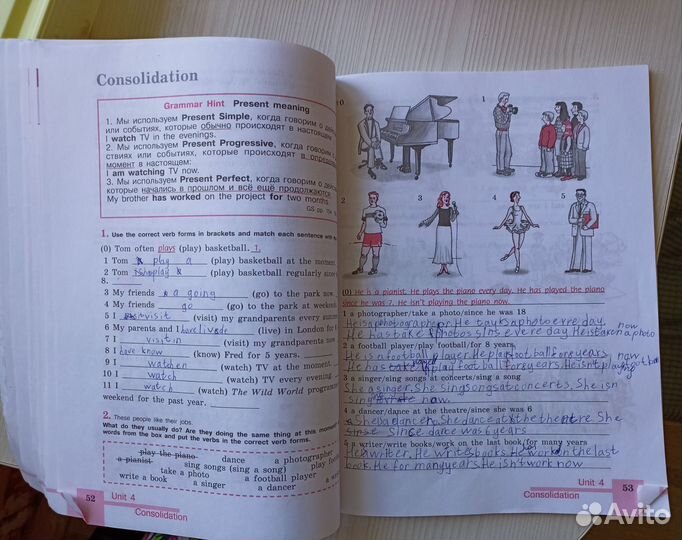 Consolidation
Grammar Hint Present meaning
1. Мы используем Present Simple, когда говорим о
или событиях, которые обычно происходят в настоящем
I watch TV in the evenings.
2. Мы используем Present Progressive, когда говорим
ствиях или событиях, которые происходят в
момент в настоящем:
I am watching TV now.
3. Мы используем Present Perfect, когда говорим о
которые начались в прошлом и всё ещё продолжаются.
My brother has worked on the project for two months.
1. Use the correct verb forms in brackets and match each sentence with
(0) Tom often plays (play) basketball. 1.
1 Tom play a (play) basketball at the moment.
2 Tom (play) basketball regularly since
8.
3 My friends a going (go) to the park now.
4 My friends go (go) to the park at weekend
5 I visit (visit) my grandparents every
6 My parents and I have live (live) in London for
7 I visit in (visit) my grandparents now
8 I have know (know) Fred for 5 years.
9 I watchen (watch) TV at the moment.
10 I watch (watch) TV every evening
11 I watch (watch) The Wild World
weekend for the past year.
2. These people like their jobs.
What do they usually do? Are they doing the same thing at this moment
words from the box and put the verbs in the correct verb forms.
play the piano dance a photographer
a pianist sing songs (sing a song) play
take a photo a football player
write a book a singer a dancer
52 Unit 4
Consolidation
0 1
2 3 4 5
(0) He is a pianist. He plays the piano every day. He has played the piano
since he was 7. He isn't playing the piano now.
1 a photographer/take a photo/since he was 18
He is a photographer. He tayks a photo evre day.
now
He has take photos sins evere day. He is taken a photo
2 a football player/play football/for 8 years
He is a football player. He play football for years
now
He has play football for years. He isn't play
3 a singer/sing songs at concerts/sing a song
She a singer. She sing songs at concerts. She isn
sing now.
4 a dancer/dance at the theatre/since she was 6
She ba dancer. She dance at the theatre. She
since dance was 6 years
5 a writer/write books/work on the last book/for many years
He writer. He write books. He work on the last
book. He for many years. He isn't work now
Unit 4 53
Consolidation
Avito